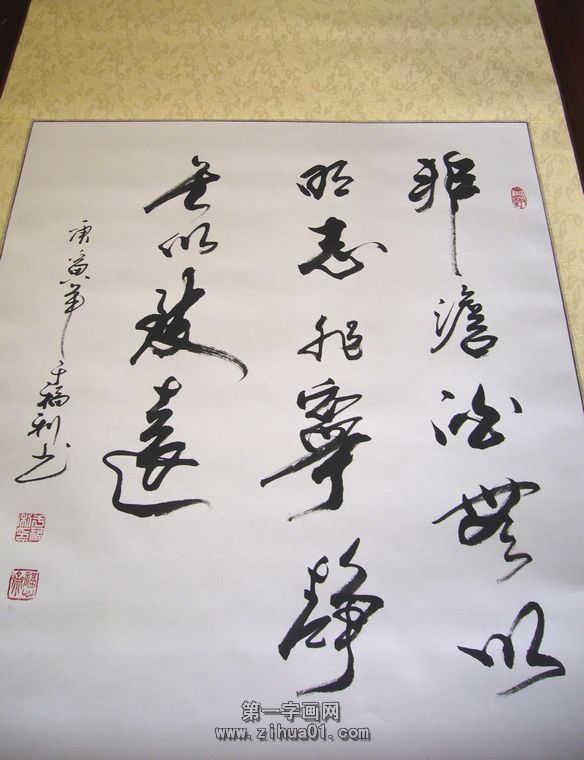 非澹泊無以
明志非寧靜
無以致遠
庚寅年王福利书
第一字画网
www.zihua01.com